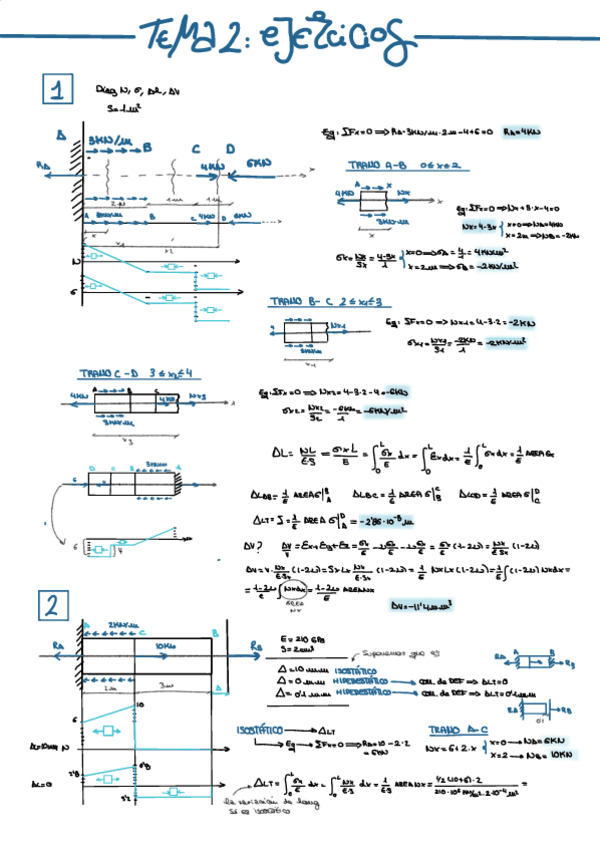 TEMA 2: EJERCICIOS
1
Diag N, σ, Δl, ΔV
S=1m²
A 3KN/m B C D
RA 4KN 6KN x
2m 1m 1m
A 3KN/m B C 4KN D 6KN
x
x1
x2
N
σ
Eq: ΣFx=0 ⟹ RA+3KN/m·2m-4+6=0 RA=4KN
TRAMO A-B 0≤x≤2
4KN A x Nx
3KN/m
x
Eq: ΣFx=0 ⟹ Nx+3·x-4=0
Nx=4-3x { x=0 ⟹ NA=4KN
x=2m ⟹ NB=-2KN
σx=Nx/Sx=4-3x/1 { x=0 ⟹ σA=4/1=4KN/m²
x=2m ⟹ σB=-2KN/m²
TRAMO B-C 2≤x1≤3
Nx1
3KN/m
x1
Eq: ΣFx=0 ⟹ Nx1=4-3·2=-2KN
σx1=Nx1/S1=-2KN/1=-2KN/m²
TRAMO C-D 3≤x2≤4
A B C
4KN 4KN Nx2 x
3KN/m
x2
Eq: ΣFx=0 ⟹ Nx2=4-3·2-4=-6KN
σx2=Nx2/S2=-6KN/1=-6KN/m²
ΔL=NL/E·S=σx L/E=∫₀ᴸ σx/E dx=∫₀ᴸ Ex dx=1/E ∫₀ᴸ σx dx=1/E AREA σx
D C B A
6 4
ΔLAB=1/E AREA σ|ᴮA ΔLBC=1/E AREA σ|ᶜB ΔLCD=1/E AREA σ|ᴰC
ΔLT=S=1/E AREA σ|ᴰA=-2'86·10⁻⁸m
ΔV? ΔV/V=Ex+Ey+Ez=σx/E-νσx/E-νσx/E=σx/E(1-2ν)=Nx/E·Sx(1-2ν)
ΔV=V·Nx/E·Sx(1-2ν)=Sx Lx Nx/E·Sx(1-2ν)=1/E Nx Lx(1-2ν)=1/E∫(1-2ν)Nx dx=
=1-2ν/E ∫Nx dx=1-2ν/E AREA Nx
AREA Nx
2
2KN/m C B
RA 10KN RB
2m 3m Δ
6 10
Δ=10mm N
Δ=0
E=210 GPa
S=2cm²
Suponemos que es
Δ=10mm ISOSTÁTICO
Δ=0mm HIPERESTÁTICO → COM. de DEF ⟹ ΔLT=0
Δ=0'1mm HIPERESTÁTICO → COM. de DEF ⟹ ΔLT=0'1mm
A B
RA RB
0'1
ISOSTÁTICO → ΔLT
→ Eq → ΣFx=0 ⟹ RA=10-2·2
=6KN
TRAMO A-C
Nx=6+2·x { x=0 → NA=6KN
x=2 → NB=10KN
ΔLT=∫₀ᴸ σx/E dx=∫₀ᴸ Nx/E·S dx=1/E·S AREA Nx=
La variación de long
si es ISOSTÁTICO